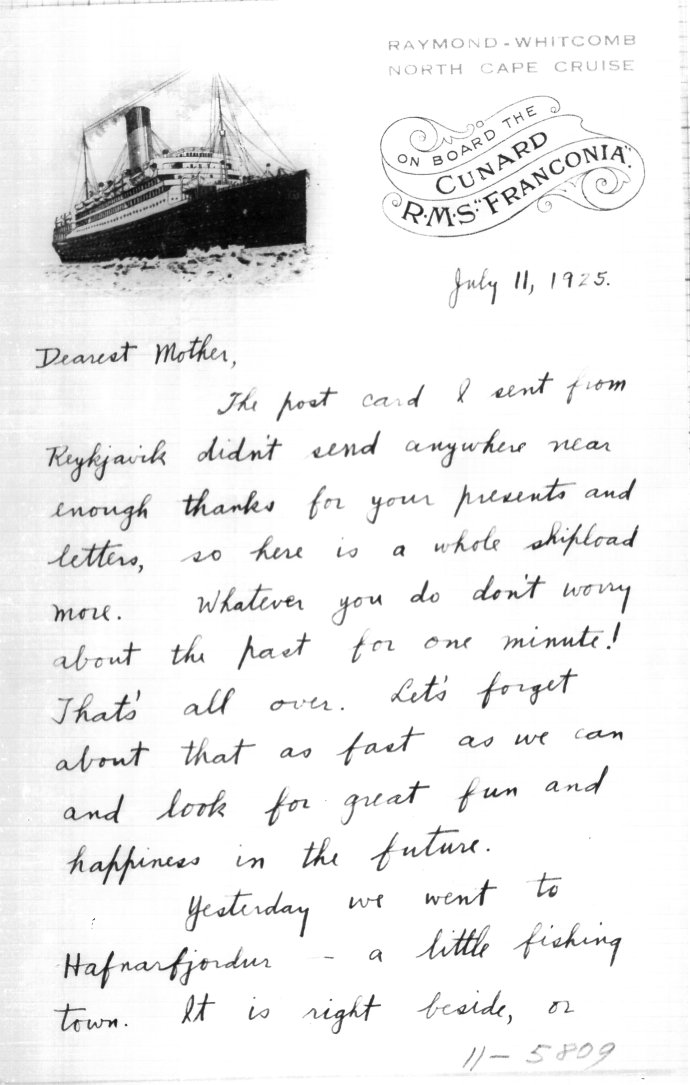 RAYMOND-WHITCOMB
NORTH CAPE CRUISE
ON BOARD THE
CUNARD
R·M·S·"FRANCONIA".
July 11, 1925.
Dearest Mother,
The post card I sent from
Reykjavik didn't send anywhere near
enough thanks for your presents and
letters, so here is a whole shipload
more. Whatever you do don't worry
about the past for one minute!
That's all over. Let's forget
about that as fast as we can
and look for great fun and
happiness in the future.
Yesterday we went to
Hafnarfjordur - a little fishing
town. It is right beside, or
11-5809